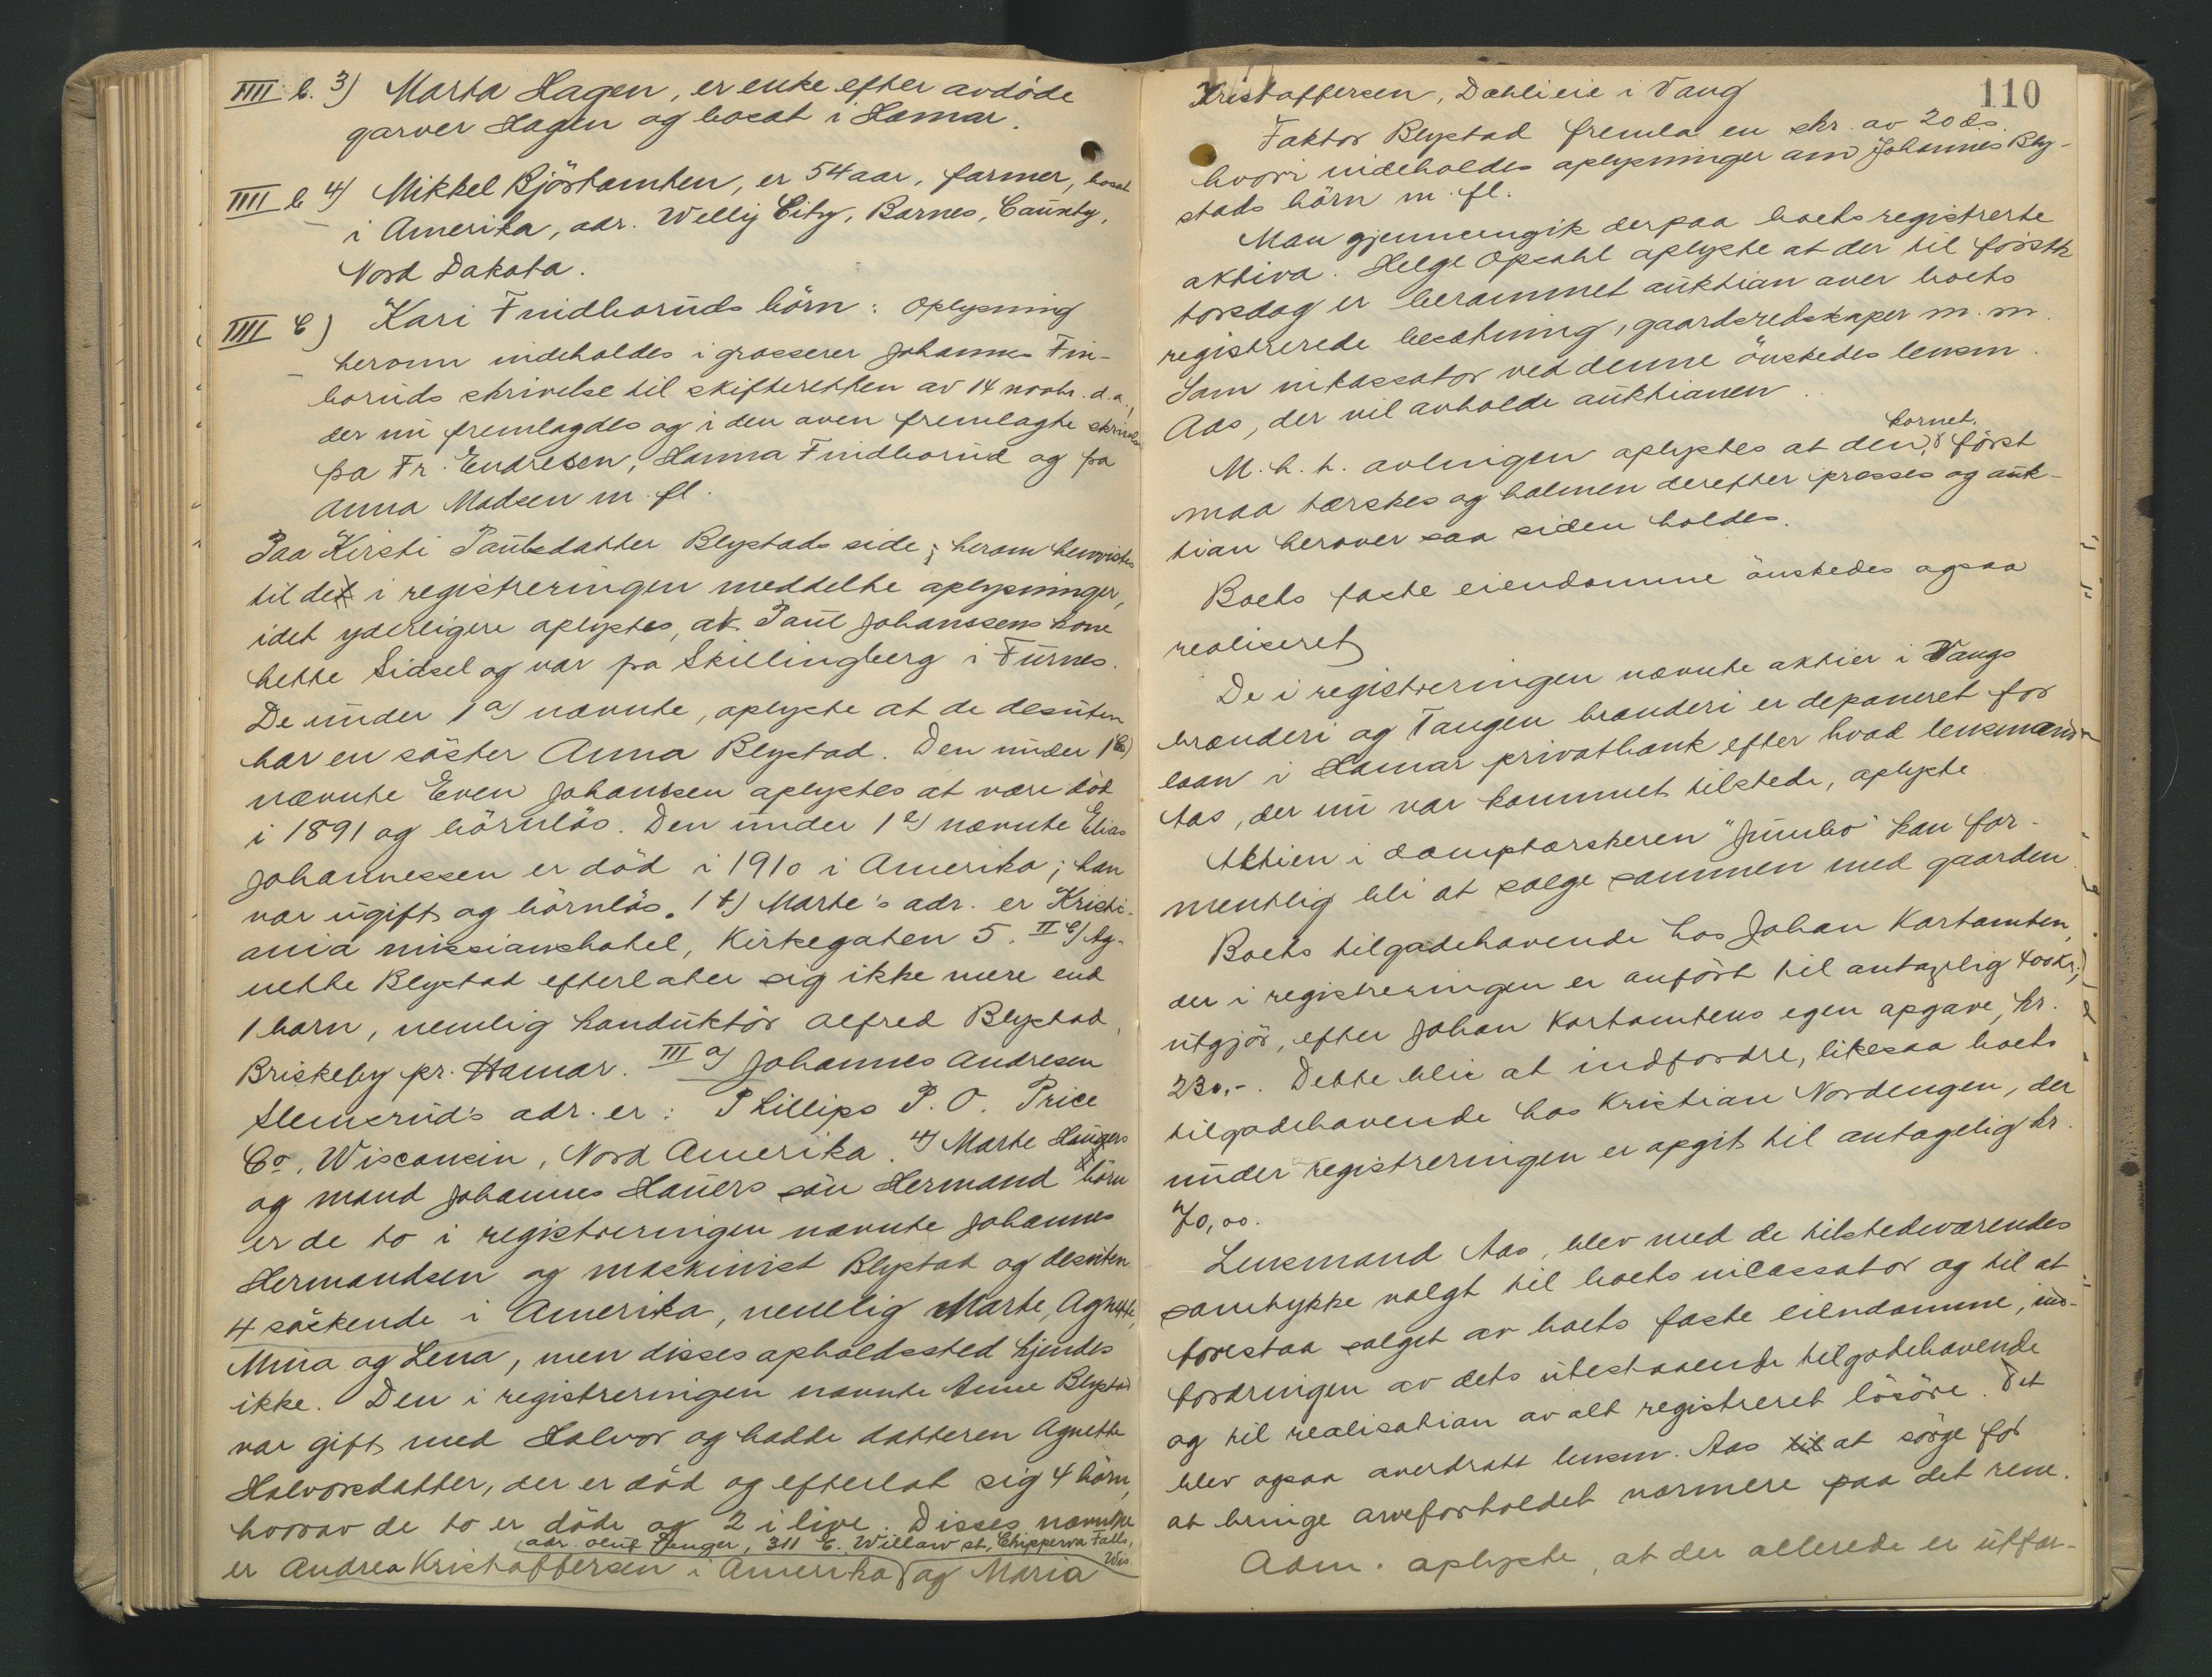 IIII b. 3) Marta Hagen, er enke efter avdöde
garver Hagen og bosat i Hamar.
IIII b 4) Mikkel Björtomten, er 54 aar, farmer, bosat
i Amerika, adr. Willy City, Barnes, County,
Nord Dakota.
IIII C) Kari Findborúds börn: Oplysning
herom indeholdes i grosserer Johannes Fin-
borúds skrivelse til skifteretten av 14 novbr. d.a.,
der nú fremlagdes og i den oven fremlagte skrivelse
fra Fr. Endresen, Hanna Findborúd og fra
Anna Madsen m. fl.
Paa Kirsti Paúlsdatter Blystads side; herom henvistes
til det i registreringen meddelte oplysninger,
idet yderligere oplystes, at Paúl Johanssens kone
hette Sidsel og var fra Skillingberg i Fúrnes.
De únder 1 a) nævnte, oplyste at de desúten
har en söster Anna Blystad. Den únder 1 b)
nævnte Even Johansen oplystes at være död
i 1891 og börnlös. Den únder 1 e) nævnte Elias
Johannessen er död i 1910 i Amerika; han
var úgift og börnlös. 1 f) Marte's adr. er Kristi-
ania missionshotel, Kirkegaten 5. II e) Ag-
nethe Blystad efterlater sig ikke mere end
1 barn, nemlig kondúktör Alfred Blystad,
Briskeby pr. Hamar. III a) Johannes Andresen
Slemsrúd's adr. er: Phillips P. O. Price
Co, Wisconsin, Nord Amerika. 4) Marte Haúgers
og mand Johannes Haúers sön Hermand's börn
er de to i registreringen nævnte Johannes
Hermandsen og maskinist Blystad og desúten
4 söskende i Amerika, nemlig Marte, Agnethe,
Mina og Lena, men disses opholdssted kjendes
ikke. Den i registreringen nævnte Anne Blystad
var gift med Halvor og hadde datteren Agnethe
Halvorsdatter, der er död og efterlot sig 4 börn,
hvorav de to er döde og 2 i live. Disses navne
adr. Olúf Fenger, 311 E. Willow st, Chippewa Falls, Wis.
er Andrea Kristoffersen i Amerika og Maria
110
Kristoffersen, Dahlieie i Vang
Faktor Blystad fremla en skr. av 20 ds.
hvori indeholdes oplysninger om Johannes Bly-
stads börn m. fl.
Man gjennemgik derpaa boets registrerte
aktiva. Helge Opsahl oplyste at der til förstk
torsdag er berammet aúktion over boets
registrerede besætning, gaardsredskaper m. m.
Som inkassator ved denne önskedes lensm.
Aas, der vil avholde aúktionen.
kornet.
M. h. t. avlingen oplystes at den, först
maa tærskes og halmen derefter presses og aúk-
tion herover saa siden holdes.
Boets faste eiendomme önskedes ogsaa
realiseret
De i registreringen nævnte aktier i Vangs
brænderi og Tangen brænderi er deponeret for
laan i Hamar privatbank efter hvad lensmand
Aas, der nú var kommet tilstede, oplyste.
Aktien i damptærskeren "Júmbo" kan for-
mentlig bli at sælge sammen med gaarden.
Boets tilgodehavende hos Johan Kortomten,
der i registreringen er anfört til antagelig 400 kr.;
útgjör, efter Johan Kortomtens egen opgave, kr.
230.-. Dette blir at indfordre, likesaa boets
tilgodehavende hos Kristian Nordengen, der
únder registreringen er opgit til antagelig kr.
70,00.
Lensmand Aas, blev med de tilstedeværendes
samtykke valgt til boets incassator og til at
forestaa salget av boets faste eiendomme, ind-
fordringen av dets útestaaende tilgodehavende
og til realisation av alt registreret lösöre. Det
blev ogsaa overdratt lensm. Aas til at sörge for
at bringe arveforholdet nærmere paa det rene.
Adm. oplyste, at der allerede er útfær-